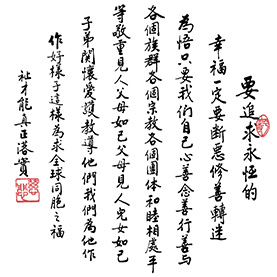 要追求永恆的
幸福一定要斷惡修善轉迷
為悟只要我們自己心善念善行善与
各個族群各個宗教各個團体和睦相處平
等敬重見人父母如己父母見人兒女如己
子弟關懷愛護教導他們我們為他作
作好樣子這樣為求全球同胞之福
祉才能真正落實